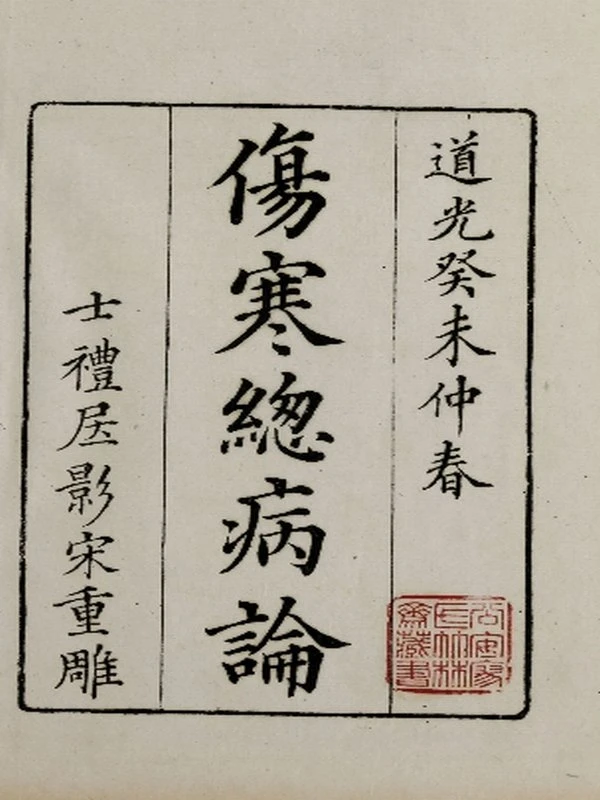 道光癸未仲春
傷寒總病論
士禮凥影宋重雕